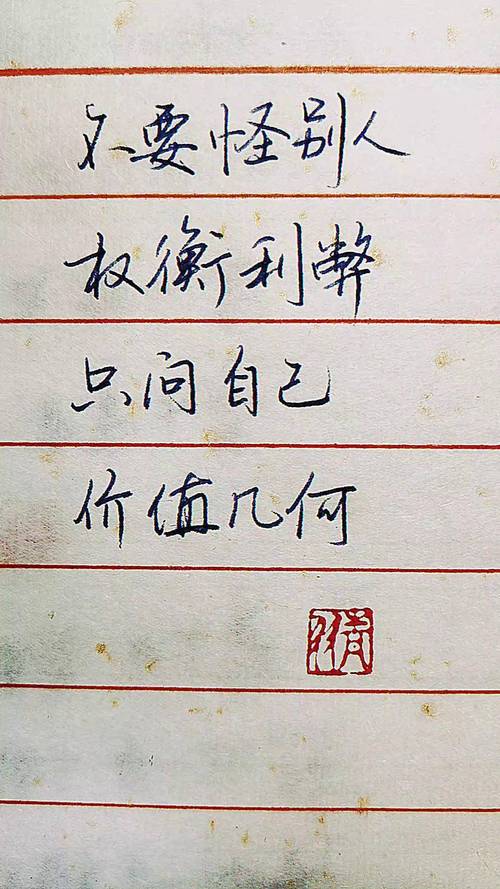 不要怪别人
权衡利弊
只问自己
价值几何